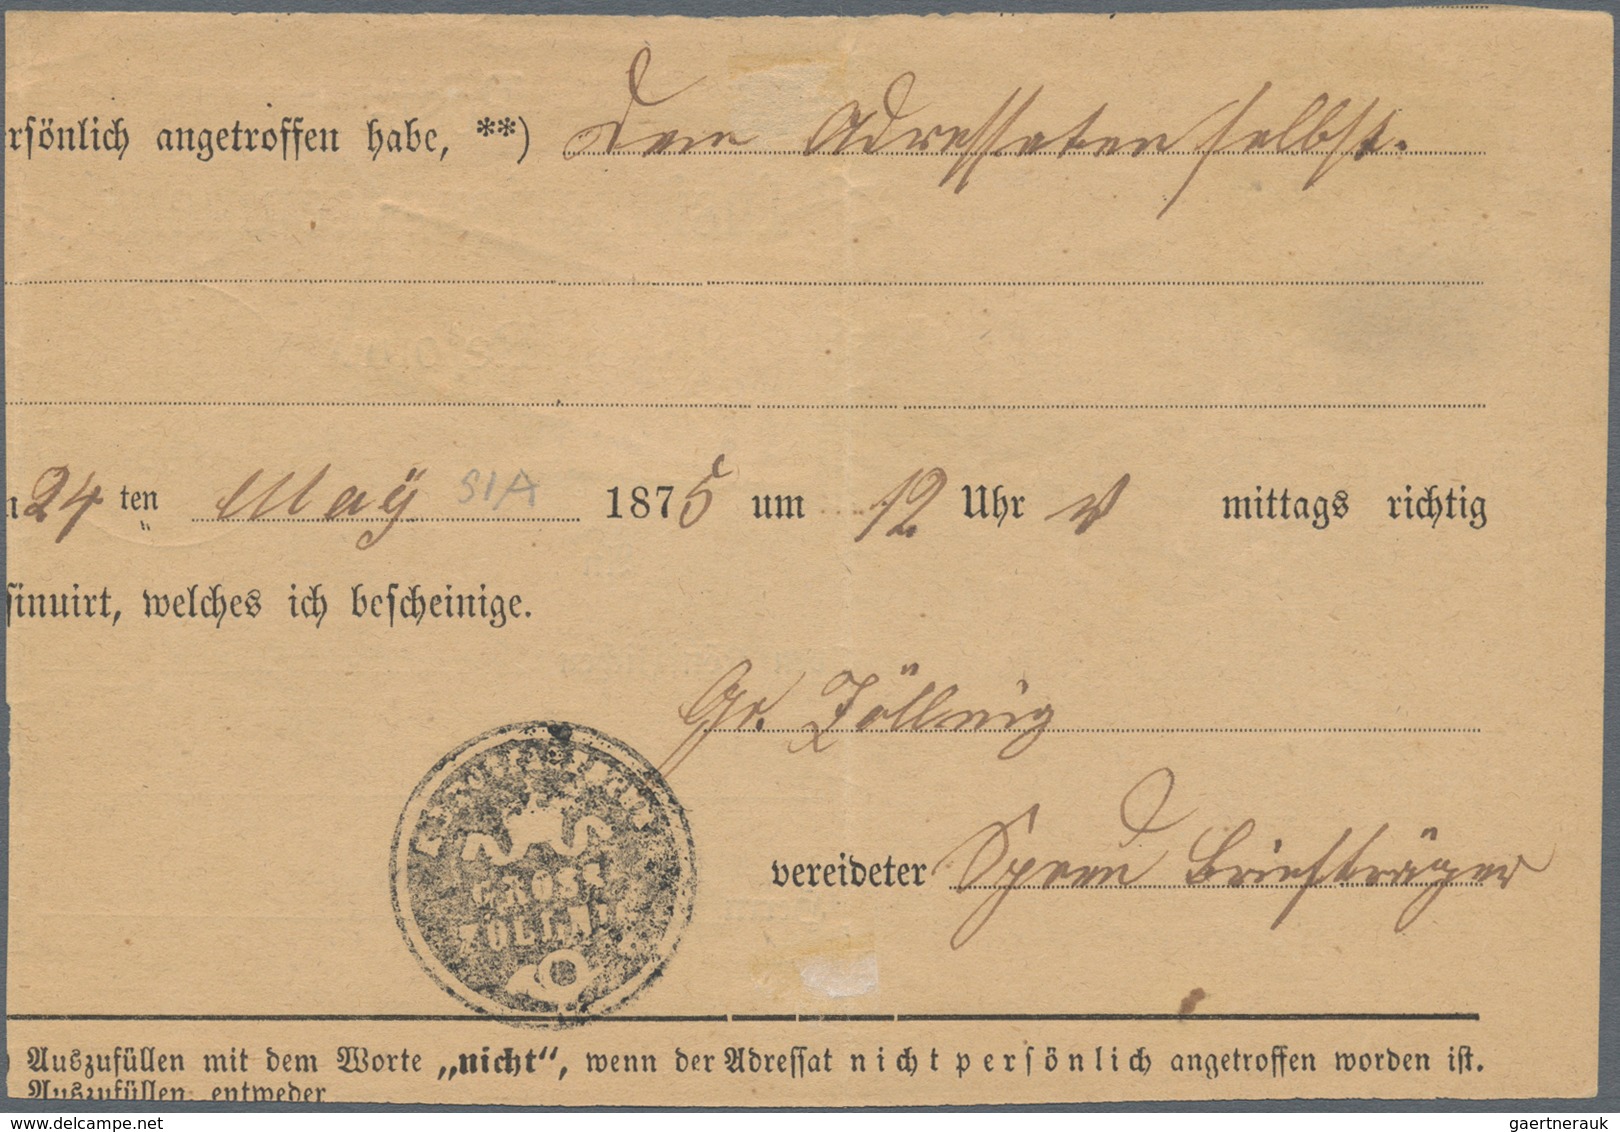 rsönlich angetroffen habe, **) dem Adressaten selbst.
24 ten May S1A 1875 um 12 Uhr V mittags richtig
sinuirt, welches ich bescheinige.
Gr. Zöllnig
GROSS
ZÖLLNIG
vereideter Briefträger
) Auszufüllen mit dem Worte „nicht“, wenn der Adressat nicht persönlich angetroffen worden ist.
Auszufüllen entweder
gaertnerauk // delcampe.net